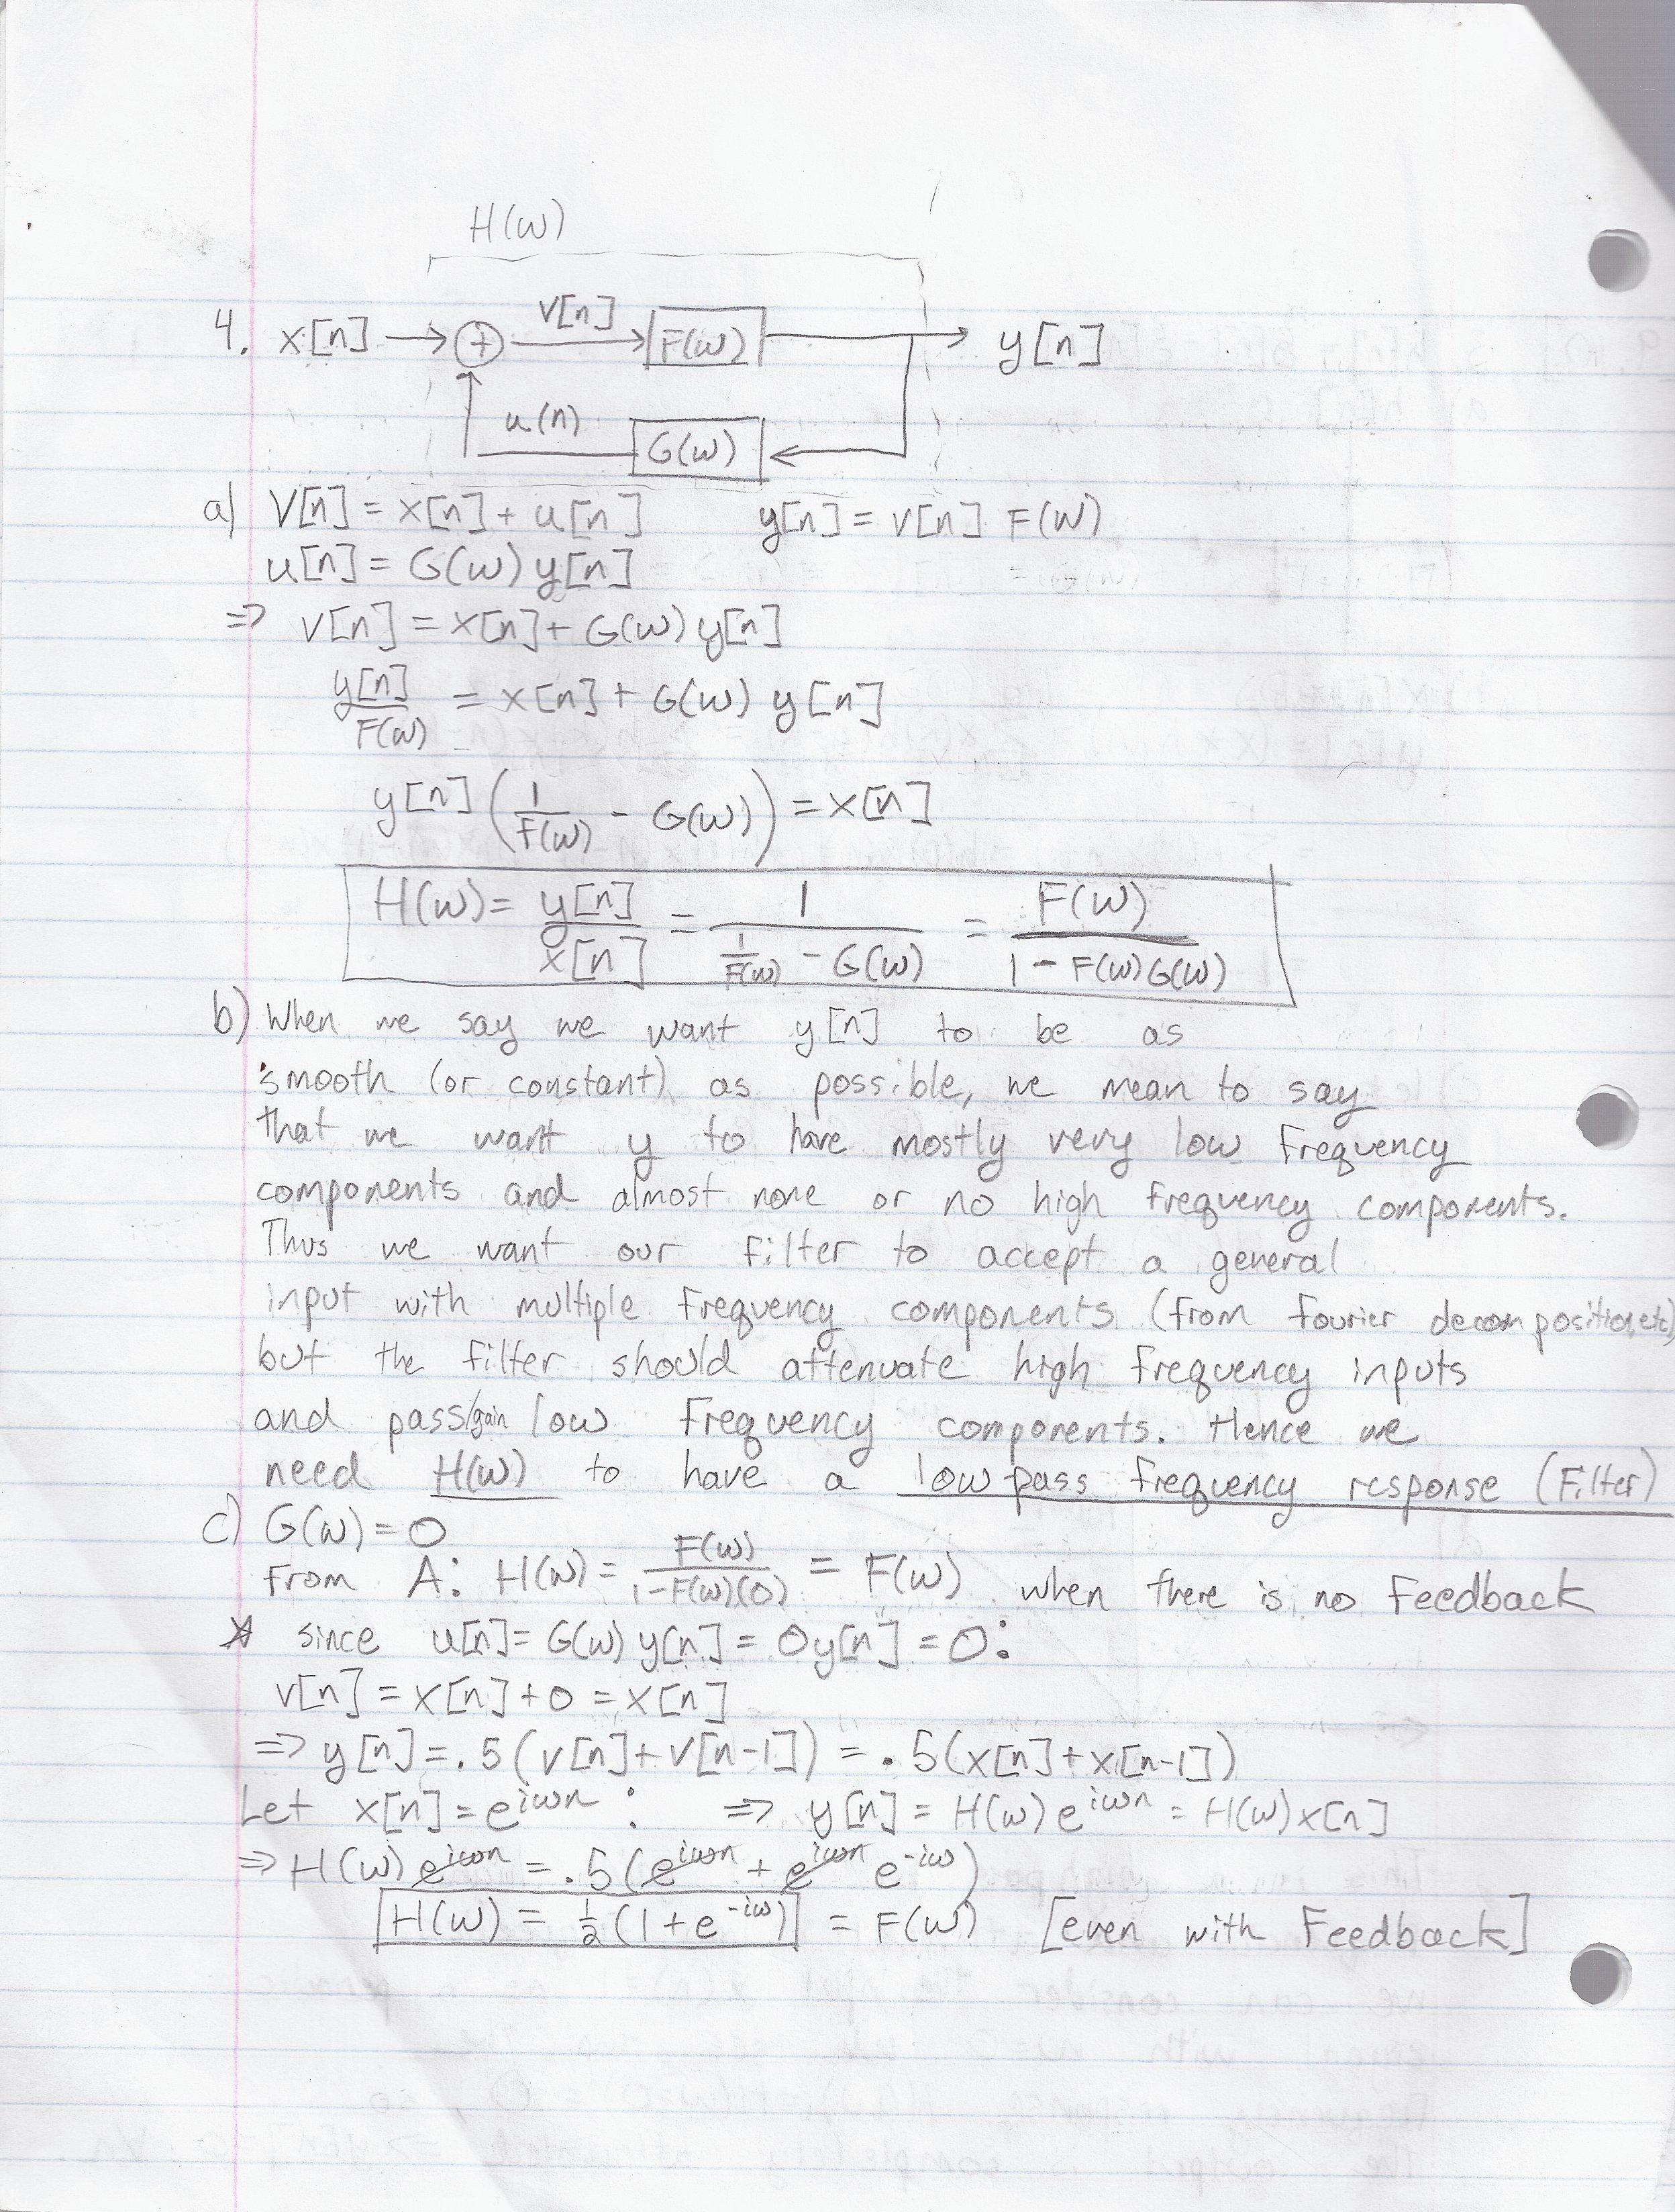 H(ω)
4. x[n] → ⊕ v[n] → F(ω) → y[n]
u(n) G(ω)
a) v[n] = x[n] + u[n]   y[n] = v[n] F(ω)
u[n] = G(ω) y[n]
⇒ v[n] = x[n] + G(ω) y[n]
y[n]/F(ω) = x[n] + G(ω) y[n]
y[n] (1/F(ω) - G(ω)) = x[n]
H(ω) = y[n]/x[n] = 1/(1/F(ω) - G(ω)) = F(ω)/(1 - F(ω)G(ω))
b) When we say we want y[n] to be as
smooth (or constant) as possible, we mean to say
that we want y to have mostly very low frequency
components and almost none or no high frequency components.
Thus we want our filter to accept a general
input with multiple frequency components (from fourier decomposition, etc)
but the filter should attenuate high frequency inputs
and pass/gain low frequency components. Hence we
need H(ω) to have a low pass frequency response (Filter)
c) G(ω) = 0
from A: H(ω) = F(ω)/(1-F(ω)(0)) = F(ω) when there is no Feedback
since u[n] = G(ω) y[n] = 0y[n] = 0:
v[n] = x[n] + 0 = x[n]
⇒ y[n] = .5(v[n] + v[n-1]) = .5(x[n] + x[n-1])
Let x[n] = e^{iωn} : ⇒ y[n] = H(ω) e^{iωn} = H(ω) x[n]
⇒ H(ω) e^{iωn} = .5(e^{iωn} + e^{iωn} e^{-iω})
H(ω) = 1/2 (1 + e^{-iω}) = F(ω) [even with Feedback]